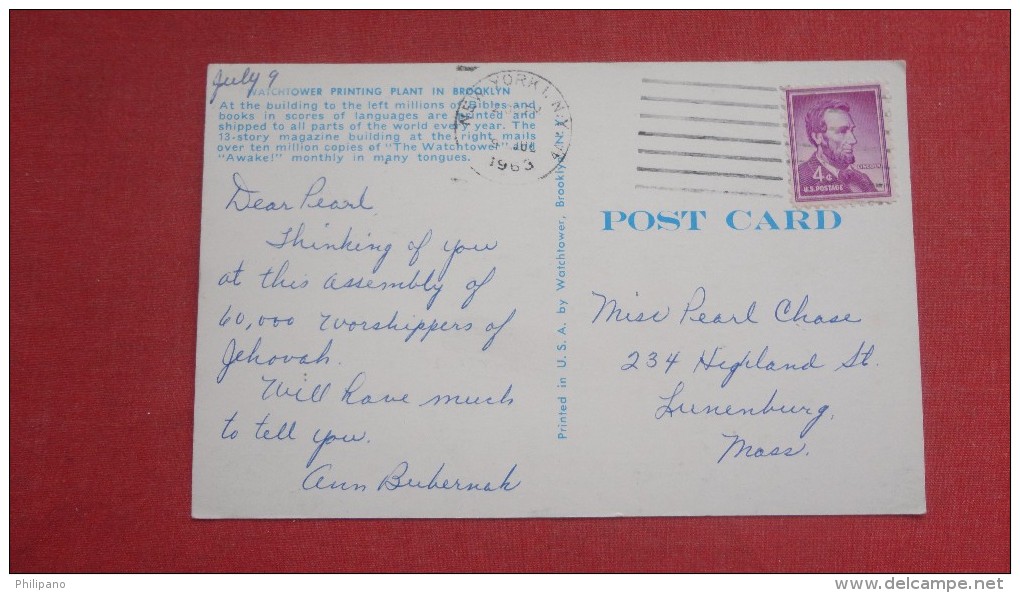 July 9
WATCHTOWER PRINTING PLANT IN BROOKLYN
At the building to the left millions of Bibles and
books in scores of languages are printed and
shipped to all parts of the world every year. The
13-story magazine building at the right mails
over ten million copies of "The Watchtower" and
"Awake!" monthly in many tongues.
Dear Pearl,
Thinking of you
at this assembly of
60,000 worshippers of
Jehovah.
Will have much
to tell you.
Ann Bubernak
Printed in U.S.A. by Watchtower, Brooklyn, N.Y.
NEW YORK 1, N.Y.
JUL
1963
4¢
LINCOLN
U.S. POSTAGE
POST CARD
Miss Pearl Chase
234 Highland St.
Lunenburg,
Mass.
Philipano
www.delcampe.net